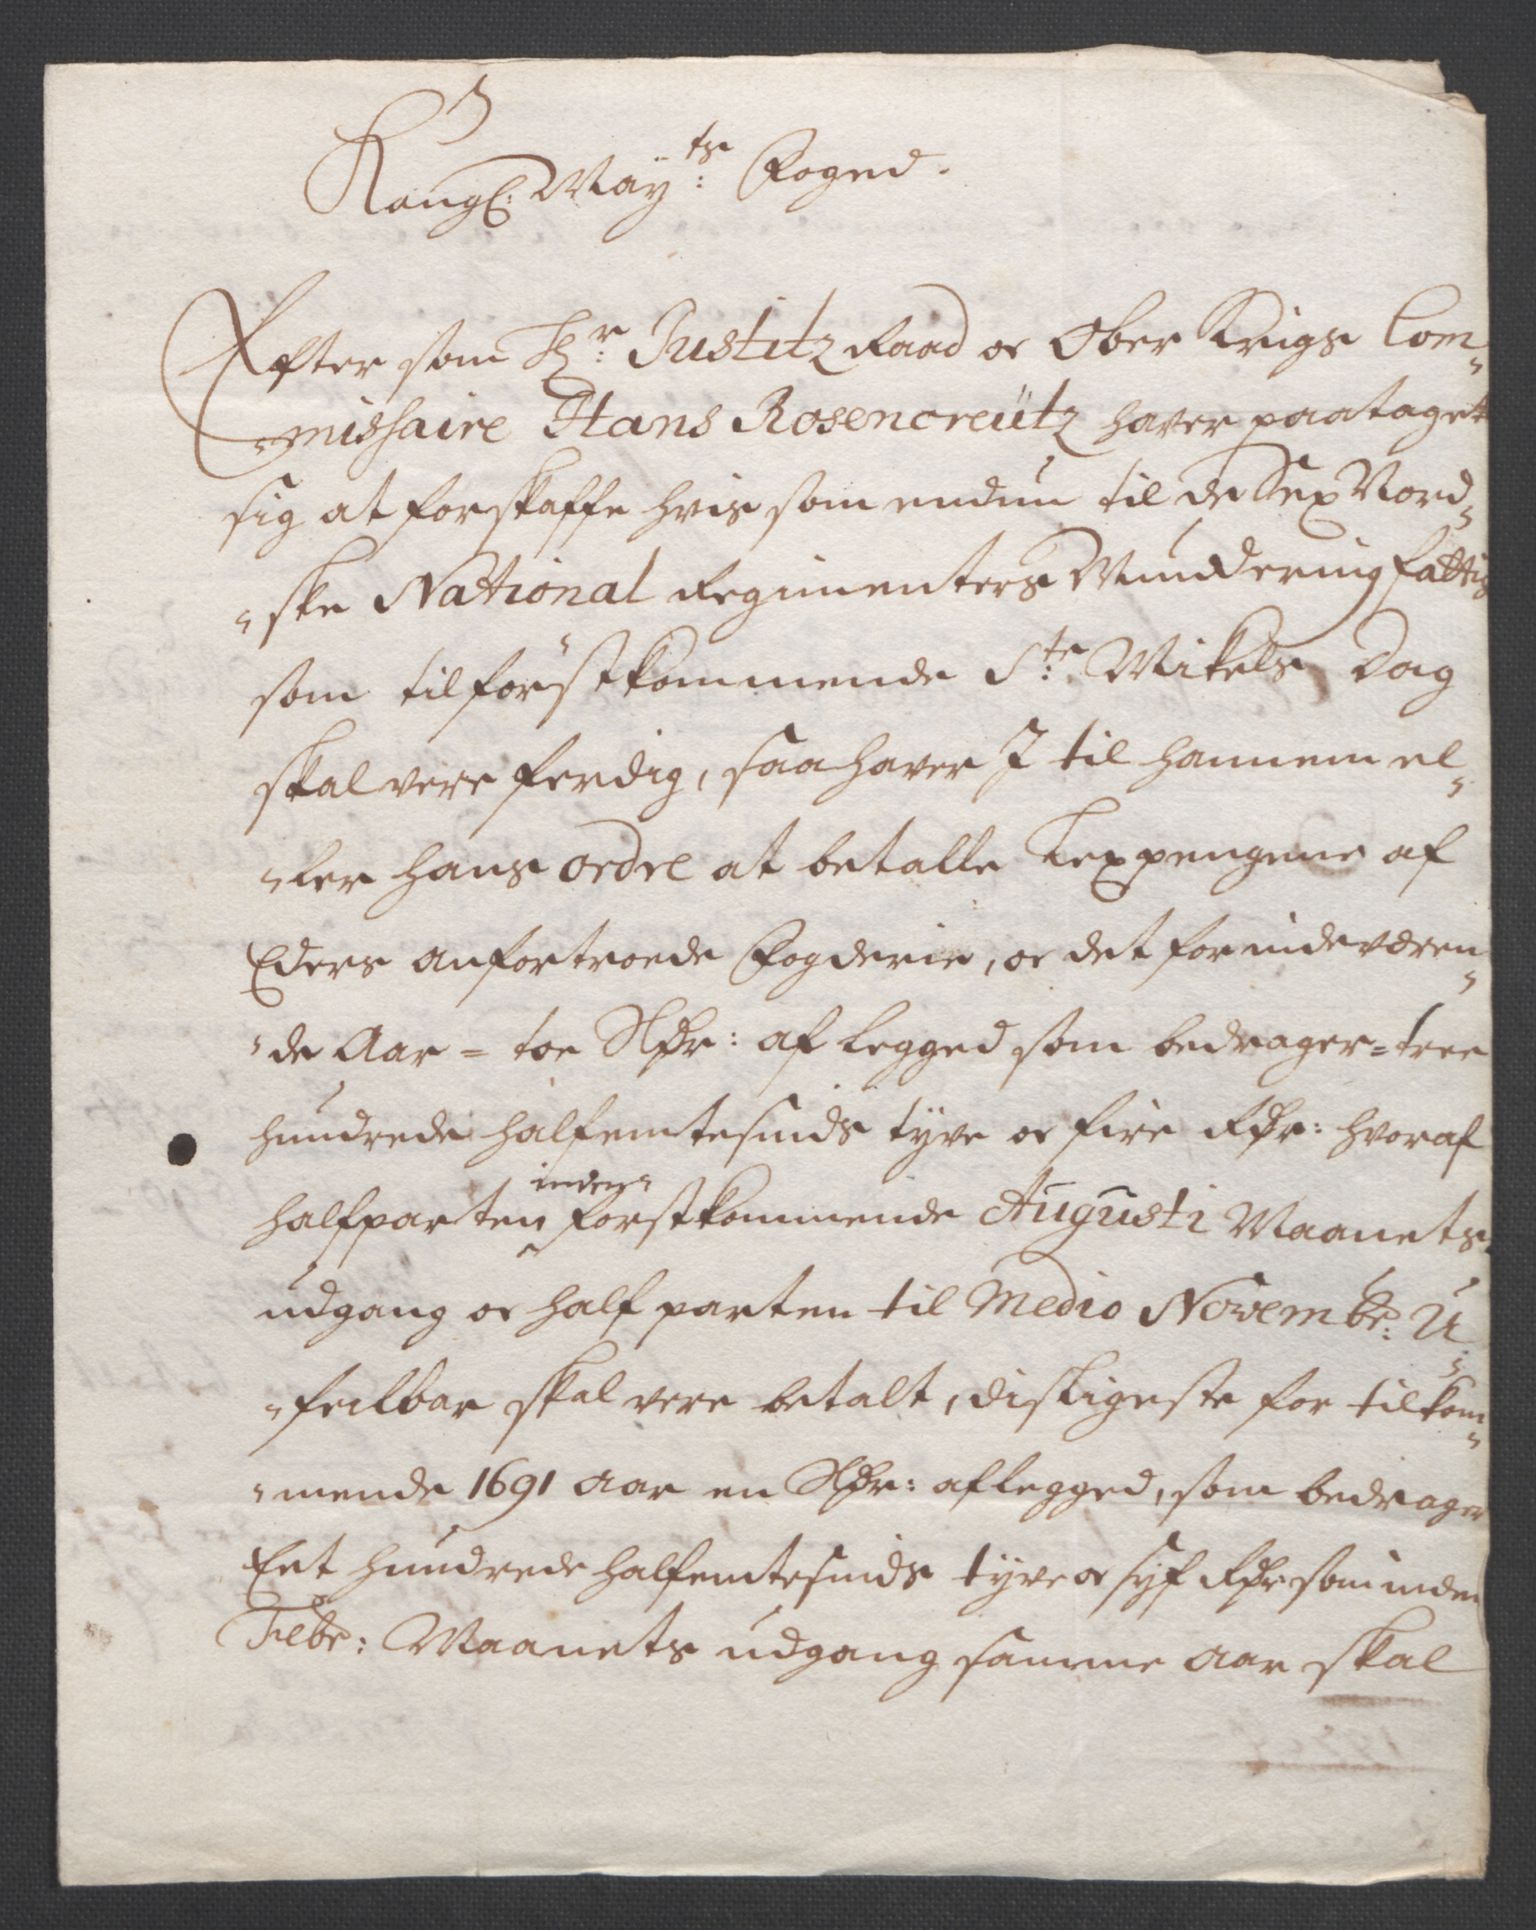 Kongl: Maÿ:ts Foged.
Efter som Hr: Justitz Raad oc Ober Krigs Com¬
¬missaire Hans Rosencreütz hafver paataget
sig at forskaffe hvis som endnu til de Sex Nord¬
¬ske National Regimenters Mundering fattis
som til förstkommende Ste: Mikels Dag
skal vere ferdig, saa hafver I til hannem el¬
¬ler hans ordre at betalle Lexpengene af
Eders anfortroede Fogderie, oc det for indeværen¬
¬de Aar = toe Slpr: aflegged som bedrager = tree
hundrede halfemtesinds tyve oc fire Rdr: hvoraf
halfparten inden forstkommende Augusti Maanets
udgang oc half parten til Medio Novembr: U¬
¬feilbar skal vere betalt, disligeste for tilkom¬
¬mende 1691 aar en Slpr: aflegged, som bedrager
Eet hundrede halfemtesinds tyve oc syf Rdr som inden
Febr: Maanets udgang samme aar skal